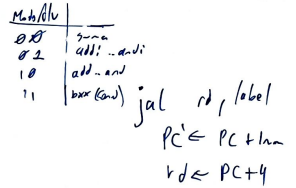 Modo/Alu
00 suma
01 addi..andi
10 add..and
11 bxx (cond)
jal rd, label
PC' ← PC + Imm
rd ← PC+4